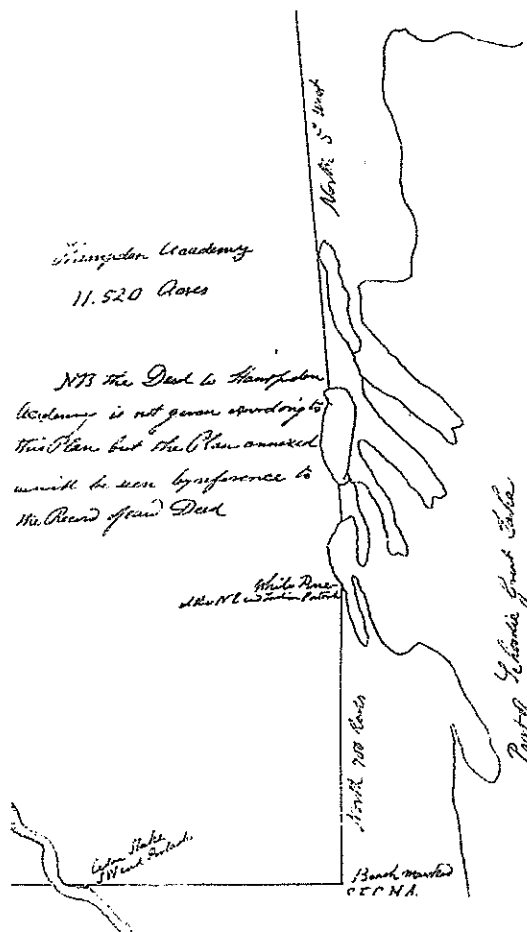 North 5° West
Hampden Academy
11.520 Acres
NB the Deed to Hampden
Academy is not given according to
this Plan but the Plan annexed
as will be seen by reference to
the Record of said Deed
White Pine
Part of Schoodic Great Lake
North 700 Rods
Cedar Stake
Beach marked
S.E.C.H.A.